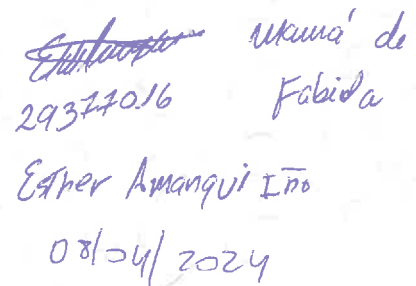 Mamá de
29377016 Fabiola
Esther Amanqui Iño
08/04/2024